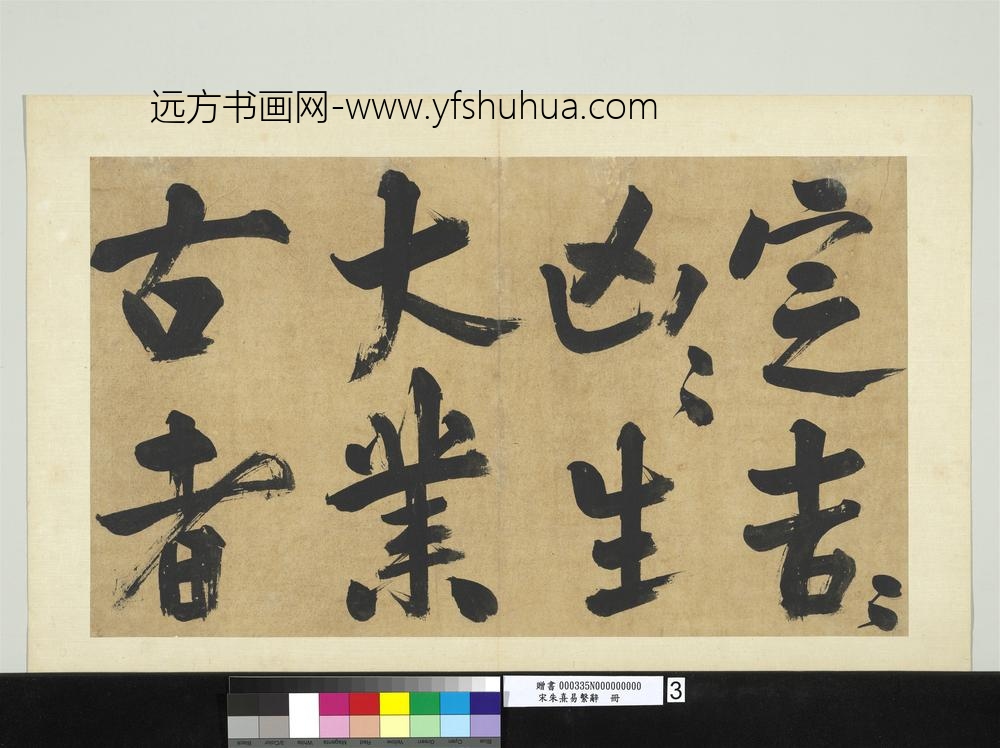 远方书画网-www.yfshuhua.com
定吉〻
凶〻生
大業
古者
贈書 000335N000000000
宋朱熹易繫辭 冊
3
Black
3/Color
White
Magenta
Red
Yellow
Green
Cyan
Blue